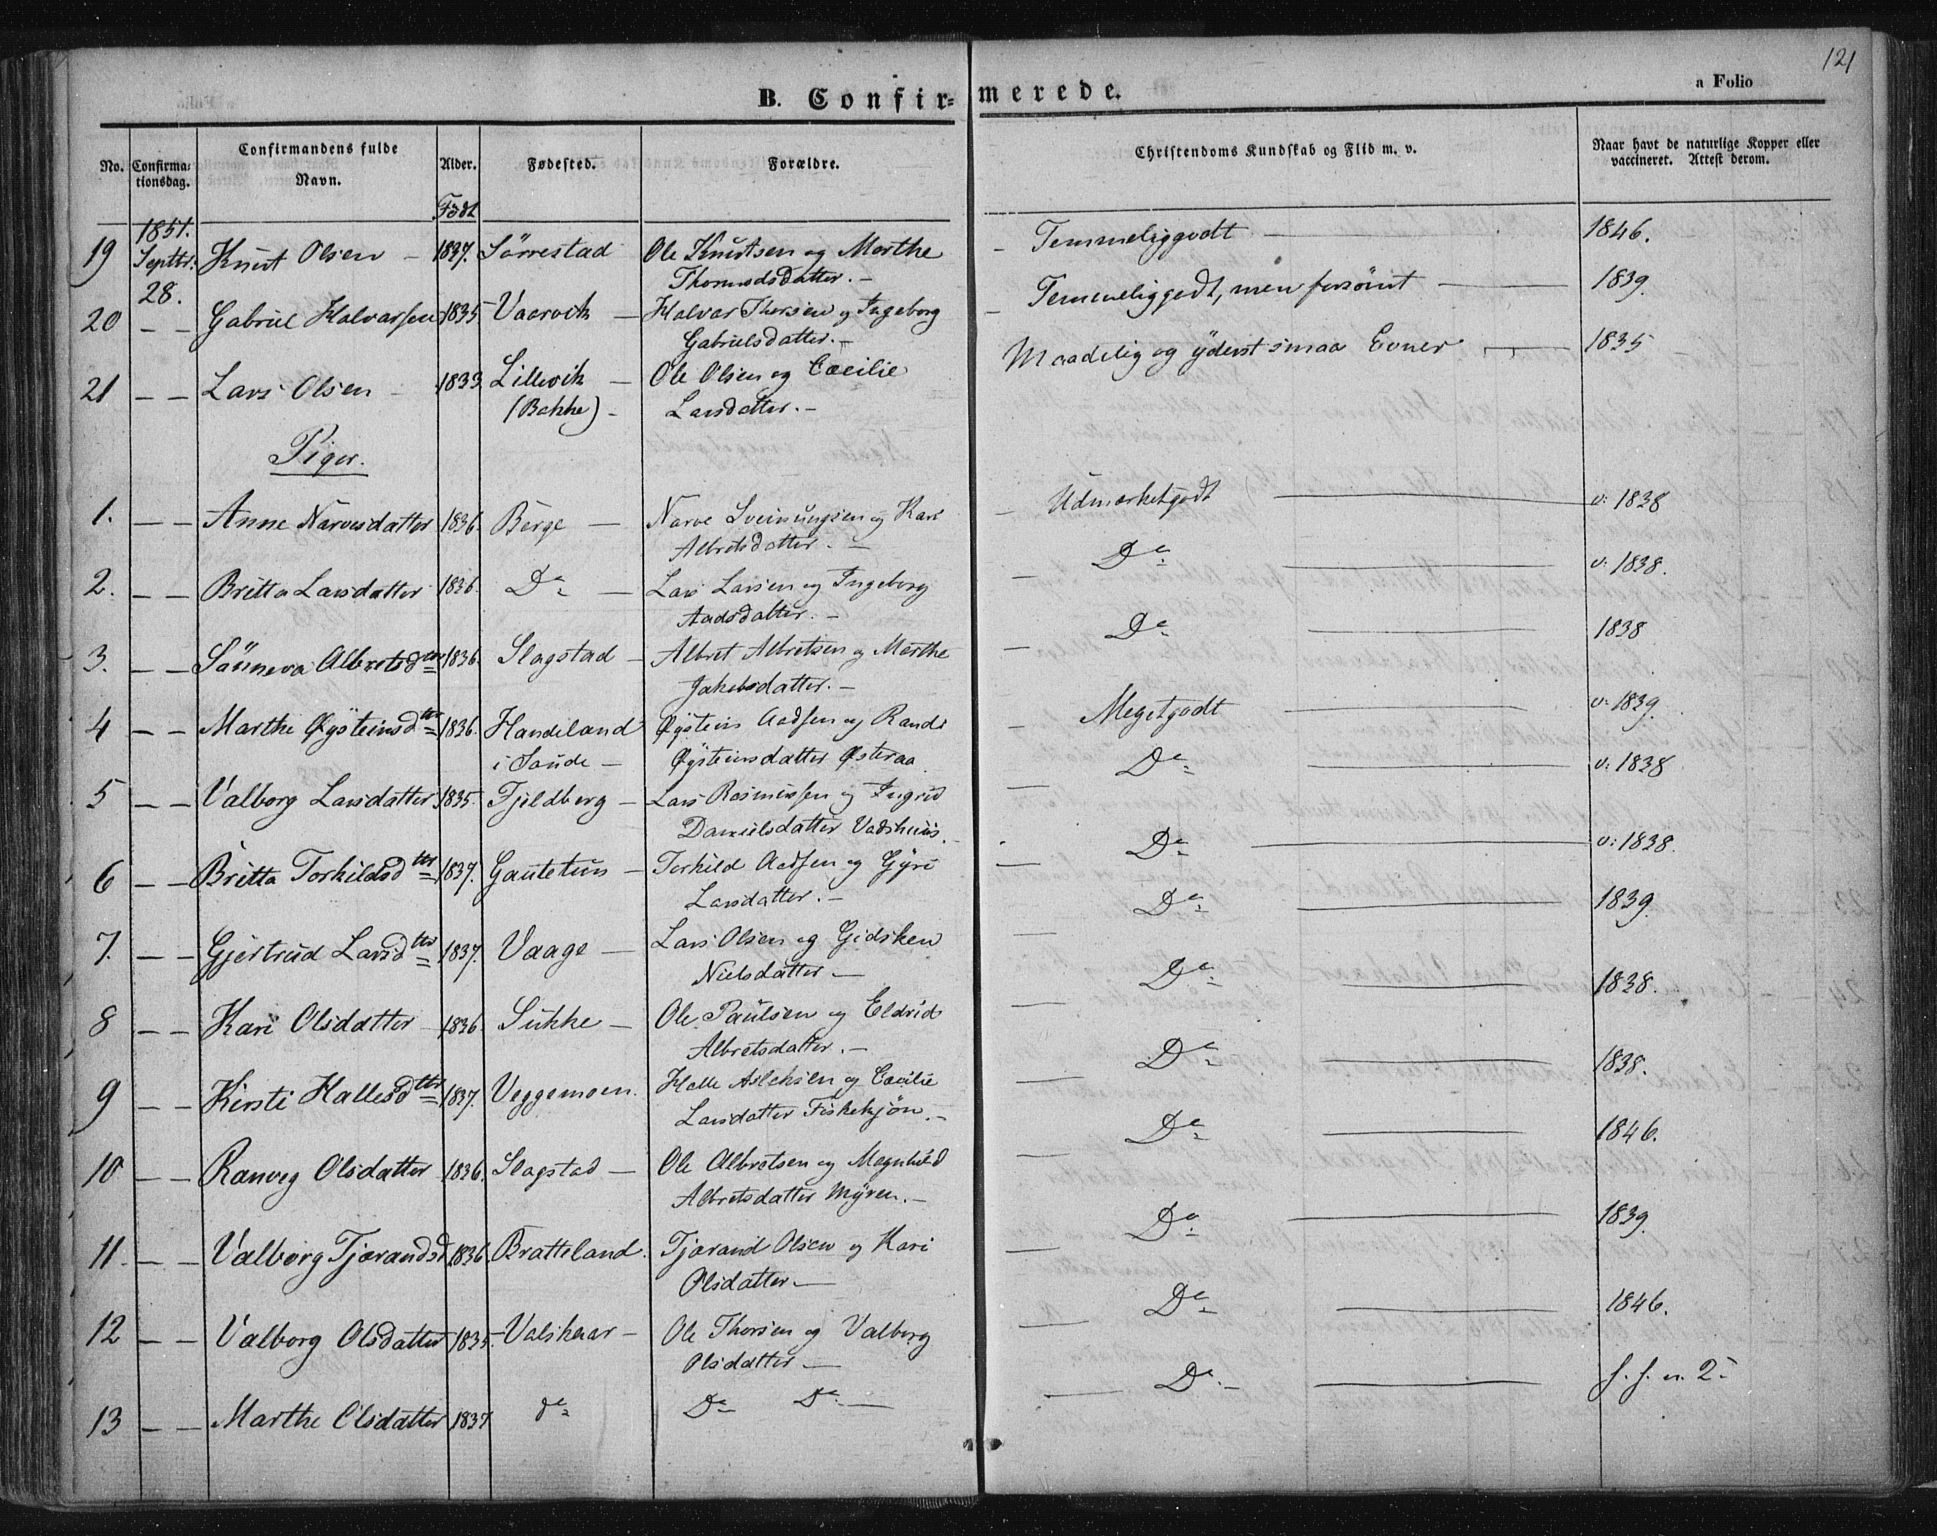 121
B. Confirmerede.
a Folio
No. Confirmationsdag. Confirmandens fulde Navn. Alder. Fødested. Forældre. Christendoms Kundskab og Flid m. v. Naar havt de naturlige Kopper eller vaccineret. Attest derom.
Født
1851.
19 Septbr. 28. Knut Olsen – 1837. Sörrestad Ole Knutsen og Marthe – Temmeliggodt – 1846.
Thormodsdatter. –
20 – – Gabriel Halvarsen 1835 Vaarvik – Halvar Thorsen og Ingeborg – Temmeliggodt, men forsömt – 1839.
Gabrielsdatter. –
21 – – Lars Olsen – 1833. Lillevik – Ole Olsen og Cæcilie Maadelig og yderst smaa Evner – 1835
(Bakke) – Larsdatter. –
Piger.
1. – – Anne Narvesdatter 1836. Berge – Narve Sveinungsen og Kari – Udmærketgodt – v: 1838
Albretsdatter. –
2. – – Britta Larsdatter 1836. Do – Lars Larsen og Ingeborg – Do – v: 1838.
Aadsdatter. –
3. – – Sönneva Albretsdtr 1836. Slagstad – Albret Albretsen og Marthe – Do – 1838
Jakobsdatter. –
4 – – Marthe Øysteinsdtr 1836. Handeland Øystein Aadsen og Randi – Megetgodt – v: 1839.
i Saude – Øysteinsdatter Østeraa
5 – – Valborg Larsdatter 1835. Fjeldberg – Lars Rasmussen og Ingrid – Do – v: 1838
Danielsdatter Vadshuus. –
6 – – Britta Torkildsdtr 1837. Gautetun – Torkild Aadsen og Gyri – Do – v: 1838.
Larsdatter. –
7. – – Gjertrud Larsdtr 1837. Vaage – Lars Olsen og Gidsken – Do – 1839.
Nielsdatter –
8 – – Kari Olsdatter – 1836. Sukke – Ole Paulsen og Eldrid – Do – 1838.
Albretsdatter. –
9 – – Kirsti Hallesdtr 1837. Veggemoen. Halle Aslaksen og Cæcilie – Do – 1838.
Larsdatter Fiskekjön. –
10 – – Ranveg Olsdatter 1836. Slagstad – Ole Albretsen og Magnhild – Do – 1846.
Albretsdatter Myren. –
11. – – Valborg Tjerandsd 1836. Bratteland. Tjerand Olsen og Kari – Do – 1839.
Olsdatter –
12 – – Valborg Olsdatter 1835. Valskaar – Ole Thorsen og Valborg – Do – 1846.
Olsdatter –
13 – – Marthe Olsdatter 1837 do Do Do – – Do –